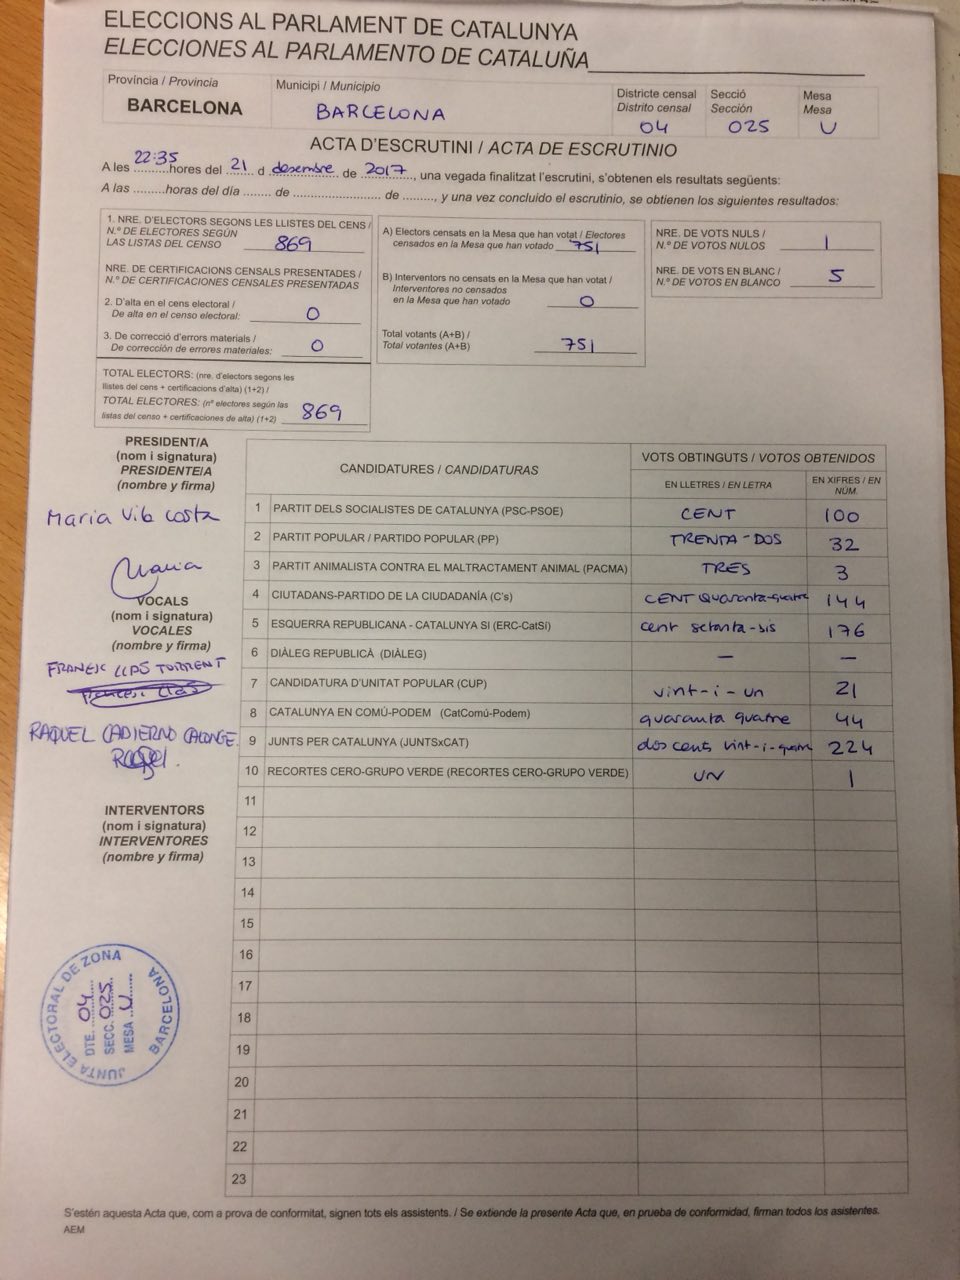 ELECCIONS AL PARLAMENT DE CATALUNYA
ELECCIONES AL PARLAMENTO DE CATALUÑA
Província / Provincia
BARCELONA
Municipi / Municipio
BARCELONA
Districte censal
Distrito censal
04
Secció
Sección
025
Mesa
Mesa
U
ACTA D'ESCRUTINI / ACTA DE ESCRUTINIO
A les 22:35 hores del 21 d desembre de 2017, una vegada finalitzat l'escrutini, s'obtenen els resultats següents:
A las .........horas del día ....... de ............................ de ........., y una vez concluido el escrutinio, se obtienen los siguientes resultados:
1. NRE. D'ELECTORS SEGONS LES LLISTES DEL CENS /
N.º DE ELECTORES SEGÚN
LAS LISTAS DEL CENSO 869
NRE. DE CERTIFICACIONS CENSALS PRESENTADES /
N.º DE CERTIFICACIONES CENSALES PRESENTADAS
2. D'alta en el cens electoral /
De alta en el censo electoral: 0
3. De correcció d'errors materials /
De corrección de errores materiales: 0
TOTAL ELECTORS: (nre. d'electors segons les
llistes del cens + certificacions d'alta) (1+2) /
TOTAL ELECTORES: (nº electores según las
listas del censo + certificaciones de alta) (1+2) 869
A) Electors censats en la Mesa que han votat / Electores
censados en la Mesa que han votado 751
B) Interventors no censats en la Mesa que han votat /
Interventores no censados
en la Mesa que han votado 0
Total votants (A+B) /
Total votantes (A+B) 751
NRE. DE VOTS NULS /
N.º DE VOTOS NULOS 1
NRE. DE VOTS EN BLANC /
N.º DE VOTOS EN BLANCO 5
PRESIDENT/A
(nom i signatura)
PRESIDENTE/A
(nombre y firma)
Maria Vila Costa
Maria
VOCALS
(nom i signatura)
VOCALES
(nombre y firma)
TORRENT
RAQUEL CADIERNO CALONGE
INTERVENTORS
(nom i signatura)
INTERVENTORES
(nombre y firma)
JUNTA ELECTORAL DE ZONA
BARCELONA
DTE. 04
SECC. 025
MESA U
CANDIDATURES / CANDIDATURAS
VOTS OBTINGUTS / VOTOS OBTENIDOS
EN LLETRES / EN LETRA
EN XIFRES / EN NÚM.
1 PARTIT DELS SOCIALISTES DE CATALUNYA (PSC-PSOE) CENT 100
2 PARTIT POPULAR / PARTIDO POPULAR (PP) TRENTA-DOS 32
3 PARTIT ANIMALISTA CONTRA EL MALTRACTAMENT ANIMAL (PACMA) TRES 3
4 CIUTADANS-PARTIDO DE LA CIUDADANÍA (C's) CENT quaranta-quatre 144
5 ESQUERRA REPUBLICANA - CATALUNYA SI (ERC-CatSí) cent setanta-sis 176
6 DIÀLEG REPUBLICÀ (DIÀLEG) — —
7 CANDIDATURA D'UNITAT POPULAR (CUP) vint-i-un 21
8 CATALUNYA EN COMÚ-PODEM (CatComú-Podem) quaranta quatre 44
9 JUNTS PER CATALUNYA (JUNTSxCAT) dos cents vint-i-quatre 224
10 RECORTES CERO-GRUPO VERDE (RECORTES CERO-GRUPO VERDE) UN 1
11
12
13
14
15
16
17
18
19
20
21
22
23
S'estén aquesta Acta que, com a prova de conformitat, signen tots els assistents. / Se extiende la presente Acta que, en prueba de conformidad, firman todos los asistentes.
AEM